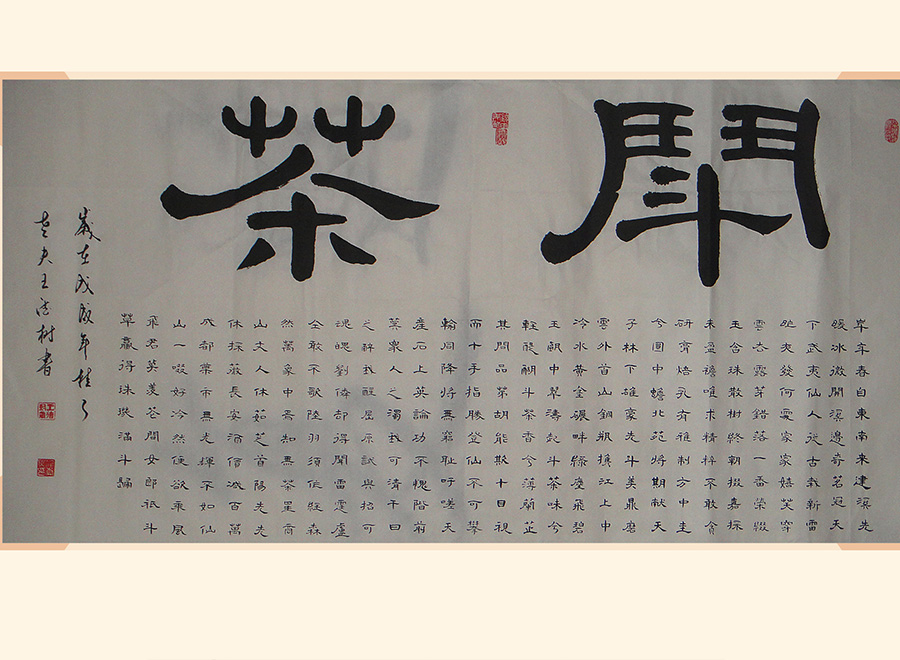 鬥茶
年年春自東南來建溪先
暖冰微開溪邊奇茗冠天
下武夷仙人從古栽新雷
昨夜發何處家家嬉笑穿
雲去露芽錯落一番榮綴
玉含珠散樹終朝掇嘉採
未盈襜唯求精粹不敢貪
研膏焙乳有雅制方中圭
兮圓中蟾北苑將期獻天
子林下雄豪先斗美鼎磨
雲外首山銅瓶攜江上中
冷水黃金碾畔綠塵飛碧
玉甌中翠濤起斗茶味兮
輕醍醐斗茶香兮薄蘭芷
其間品第胡能欺十目視
而十手指勝登仙不可攀
輸同降將無窮恥吁嗟天
產石上英論功不愧階前
蓂眾人之濁我可清千日
之醉我可醒屈原試與招
魂魄劉伶卻得聞雷霆盧
仝敢不歌陸羽須作經森
然萬象中焉知無茶星商
山丈人休茹芝首陽先生
休採薇長安酒價減百萬
成都藥市無光輝不如仙
山一啜好冷然便欲乘風
飛君莫羨花間女郎祇斗
草贏得珠璣滿斗歸
歲在戊戌年桂月
老夫王樹書